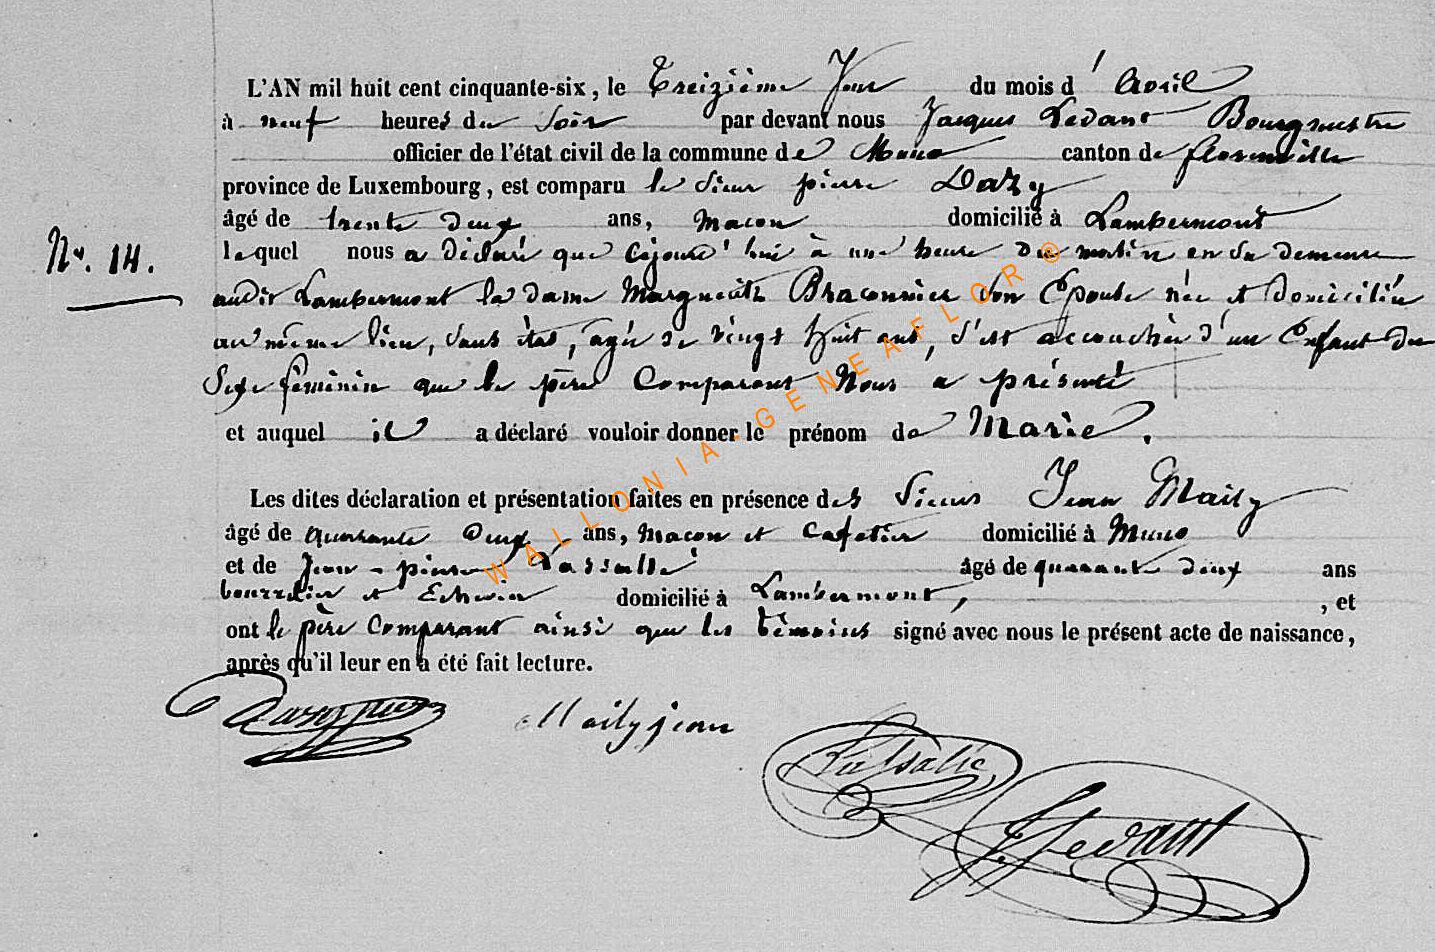 L'AN mil huit cent cinquante-six, le Treizième Jour du mois d'Avril
à neuf heures du Soir par devant nous Jacques Ledant Bourgmestre
officier de l'état civil de la commune de Muno canton de florenville
province de Luxembourg, est comparu le Sieur pierre Dazy
âgé de trente deux ans, Macon domicilié à Lambermont
N°. 14.
lequel nous a déclaré que cejourd'hui à une heure du matin en sa demeure
audit Lambermont la dame Marguerite Braconnier son Epouse née et domiciliée
au même lieu, sans état, agée de vingt huit ans, s'est accouchée d'un Enfant du
Sexe féminin que le père Comparant Nous a présenté
et auquel il a déclaré vouloir donner le prénom de Marie.
Les dites déclaration et présentation faites en présence des Sieurs Jean Maily
âgé de quarante Deux ans, Macon et Cafetier domicilié à Muno
et de Jean-pierre Lassalle âgé de quarante deux ans
bourrelier et Echevin domicilié à Lambermont, , et
ont le père Comparant ainsi que les témoins signé avec nous le présent acte de naissance,
après qu'il leur en a été fait lecture.
Dazy pierre Maily jean
Lassalle
J Ledant
WALLONIA-GENEAFLOR ©